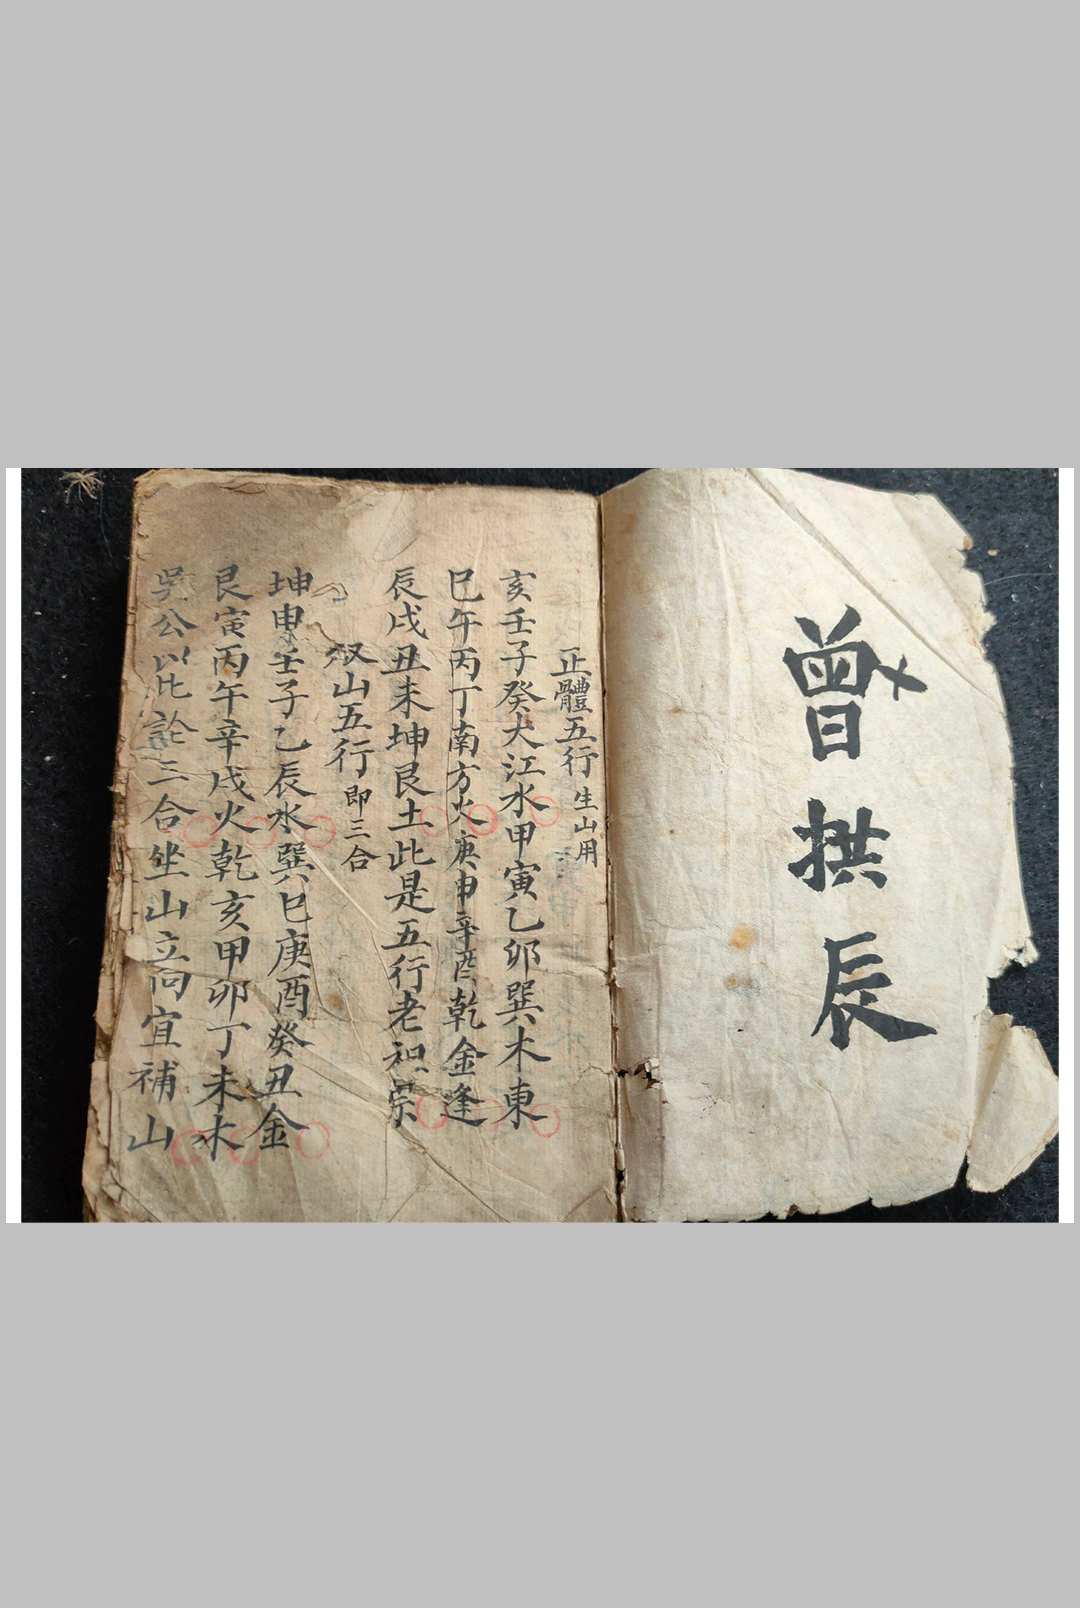 曾拱辰
正體五行生山用
亥壬子癸大江水甲寅乙卯巽木東
巳午丙丁南方火庚申辛酉乾金逢
辰戌丑未坤艮土此是五行老祖宗
双山五行即三合
坤申壬子乙辰水巽巳庚酉癸丑金
艮寅丙午辛戌火乾亥甲卯丁未木
吳公以此詮三合坐山立向宜補山